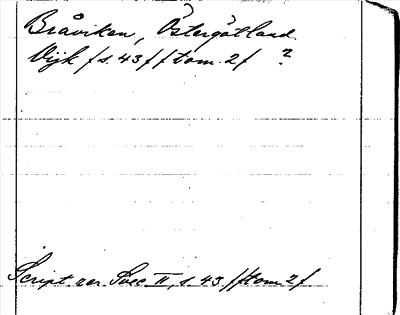 Bråviken, Östergötland
Vijk /s. 43/ /tom. 2/ ?
Script rer Svec II, s 43. /tom 2/